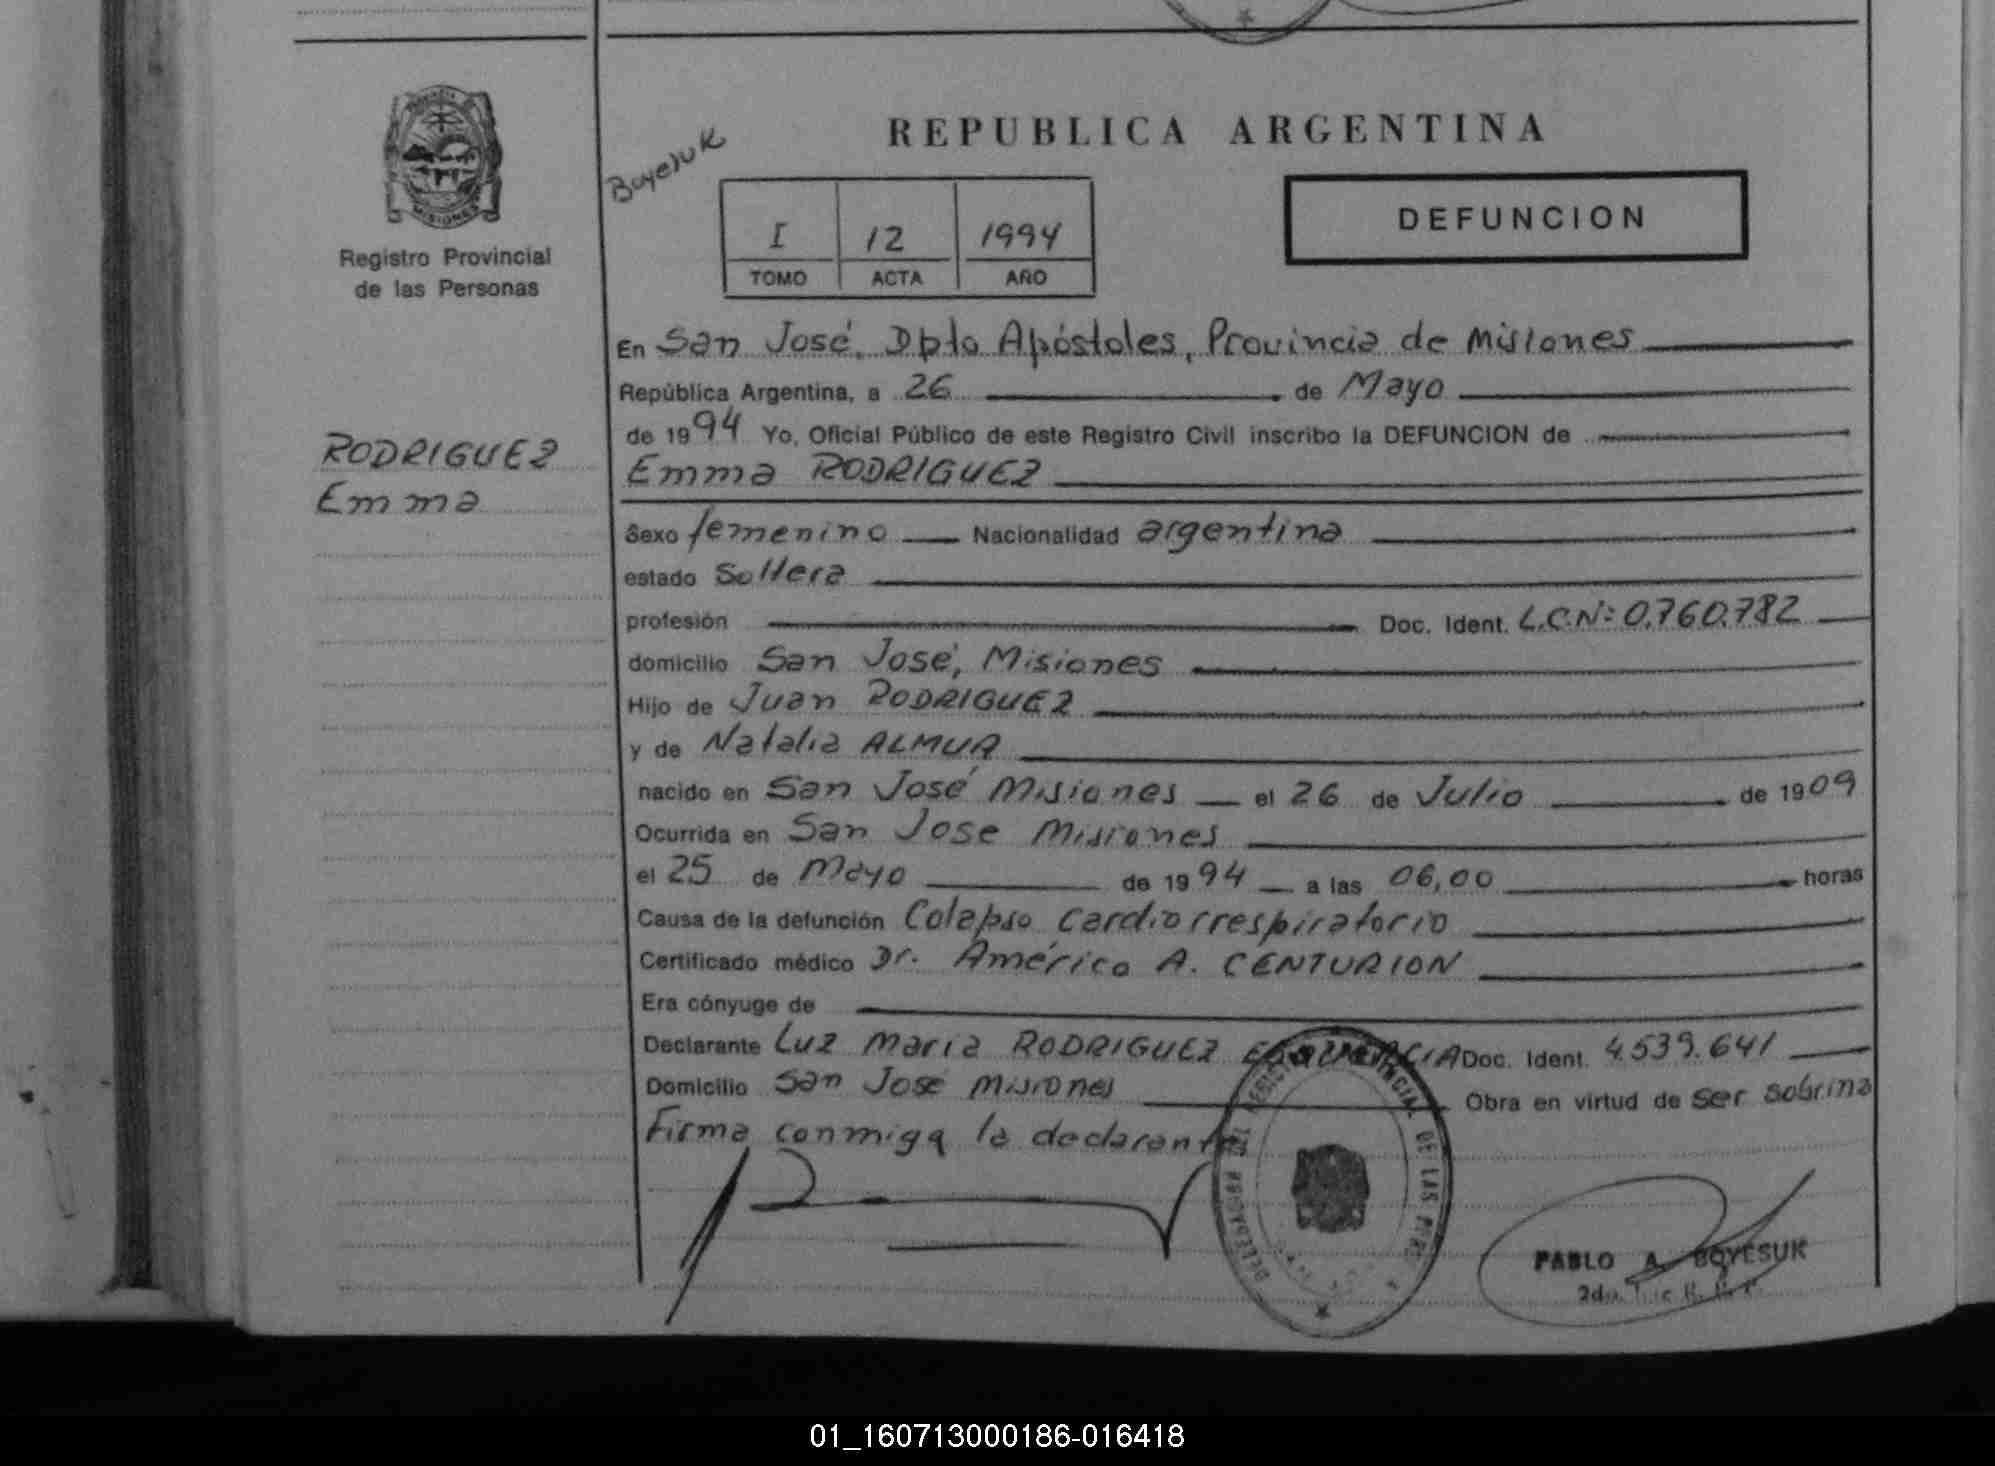 PROVINCIA DE
MISIONES
Registro Provincial
de las Personas
RODRIGUEZ
Emma
Boyesuk
REPUBLICA ARGENTINA
I 12 1994
TOMO ACTA AÑO
DEFUNCION
En San José, Dpto Apóstoles, Provincia de Misiones
República Argentina, a 26 de Mayo
de 1994 Yo, Oficial Público de este Registro Civil inscribo la DEFUNCION de
Emma RODRIGUEZ
Sexo femenino Nacionalidad argentina
estado Soltera
profesión Doc. Ident. L.C.Nº 0.760.782
domicilio San José, Misiones
Hijo de Juan RODRIGUEZ
y de Natalia ALMUA
nacido en San José Misiones el 26 de Julio de 1909
Ocurrida en San Jose Misiones
el 25 de Mayo de 1994 a las 06,00 horas
Causa de la defunción Colapso cardiorrespiratorio
Certificado médico Dr. Américo A. CENTURION
Era cónyuge de
Declarante Luz Maria RODRIGUEZ Doc. Ident. 4.539.641
Domicilio San José Misiones Obra en virtud de ser sobrina
Firma conmigo la declarante
DELEGACION DEL REGISTRO PROVINCIAL DE LAS
PABLO A. BOYESUK
01_160713000186-016418